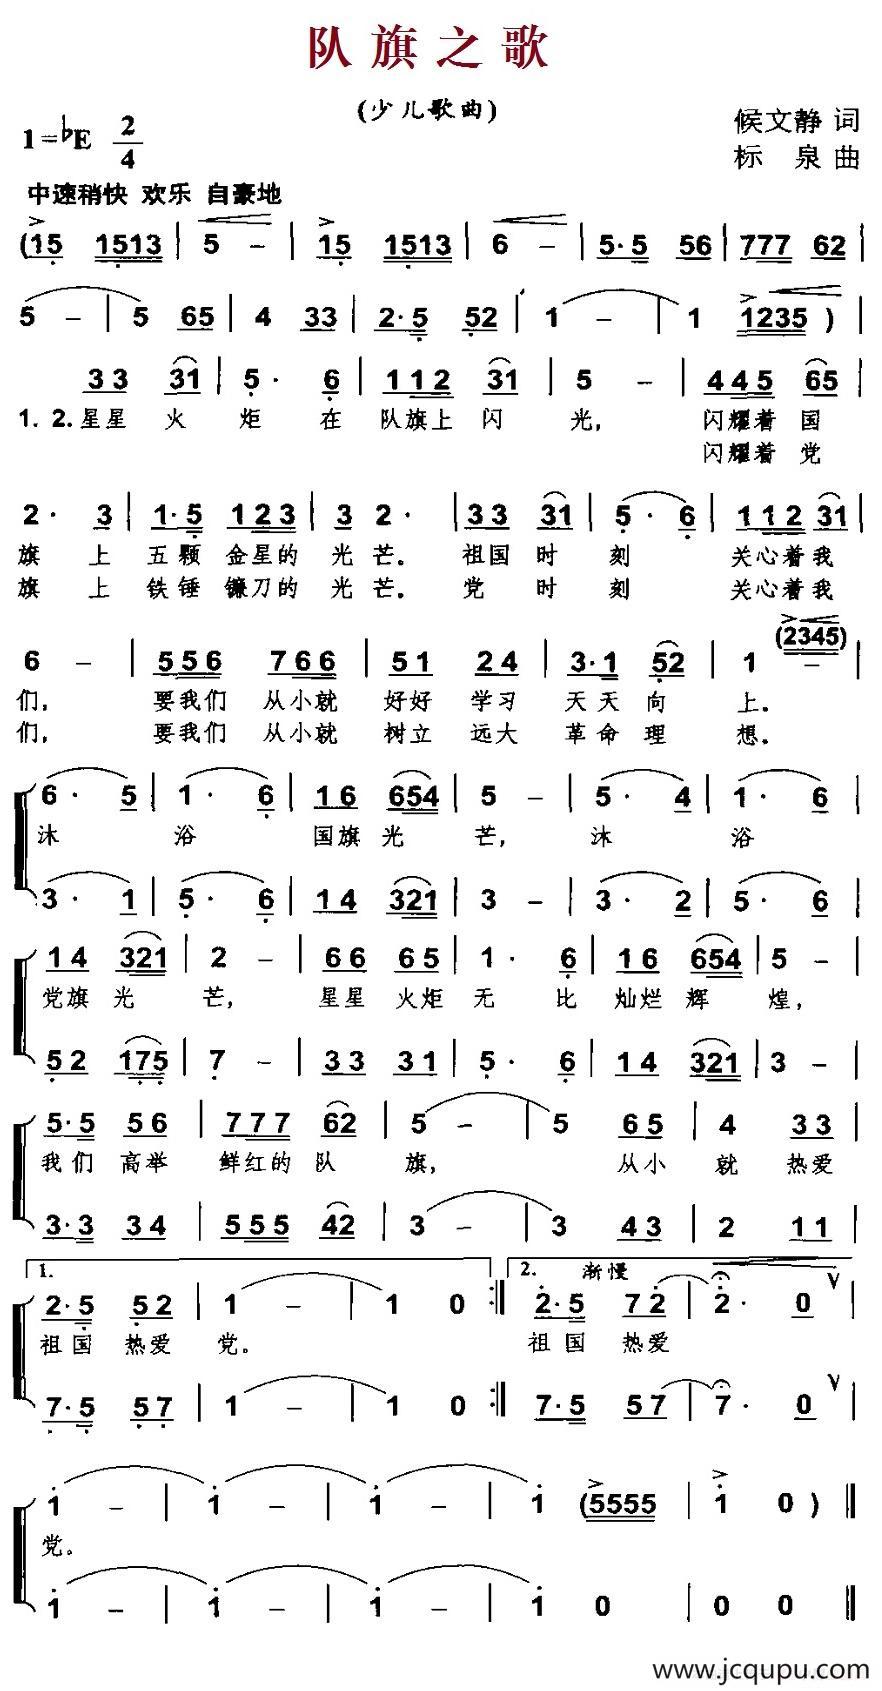 队旗之歌
(少儿歌曲)
1=♭E 2/4
候文静 词
标 泉 曲
中速稍快 欢乐 自豪地
(15 1513 | 5 – | 15 1513 | 6 – | 5·5 56 | 777 62 |
5 – | 5 65 | 4 33 | 2·5 52 | 1 – | 1 1235 ) |
33 31 | 5· 6 | 112 31 | 5 – | 445 65 |
1. 2. 星星 火 炬 在 队旗上 闪 光, 闪耀着 国
闪耀着 党
2· 3 | 1·5 123 | 3 2· | 33 31 | 5· 6 | 112 31 |
旗 上 五颗 金星的 光 芒。 祖国 时 刻 关心着 我
旗 上 铁锤 镰刀的 光 芒。 党 时 刻 关心着 我
(2345)
6 – | 556 766 | 51 24 | 3·1 52 | 1 – |
们, 要我们 从小就 好好 学习 天天 向 上。
们, 要我们 从小就 树立 远大 革命 理 想。
6· 5 | 1· 6 | 16 654 | 5 – | 5· 4 | 1· 6 |
沐 浴 国旗 光 芒, 沐 浴
3· 1 | 5· 6 | 14 321 | 3 – | 3· 2 | 5· 6 |
14 321 | 2 – | 66 65 | 1· 6 | 16 654 | 5 – |
党旗 光 芒, 星星 火炬 无 比 灿烂 辉 煌,
52 175 | 7 – | 33 31 | 5· 6 | 14 321 | 3 – |
5·5 56 | 777 62 | 5 – | 5 65 | 4 33 |
我们 高举 鲜红的 队 旗, 从小 就 热爱
3·3 34 | 555 42 | 3 – | 3 43 | 2 11 |
1. 2. 渐慢
2·5 52 | 1 – | 1 0 :‖ 2·5 72 | 2· 0 |
祖国 热爱 党。 祖国 热爱
7·5 57 | 1 – | 1 0 :‖ 7·5 57 | 7· 0 |
1 – | 1 – | 1 – | 1 (5555 | 1 0 ) ‖
党。
1 – | 1 – | 1 – | 1 0 | 0 0 ‖
www.jcqupu.com